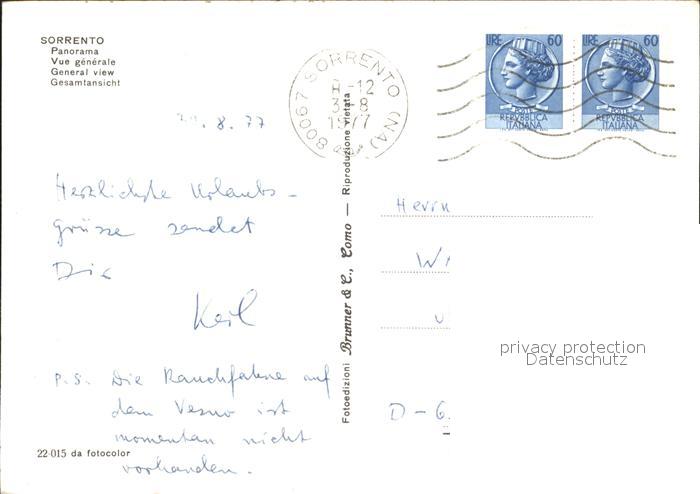 SORRENTO
Panorama
Vue générale
General view
Gesamtansicht
8. 77
Herzlichste Urlaubs-
grüsse sendet
Dir
Karl
P.S. Die Rauchfahne auf
dem Vesuv ist
momentan nicht
vorhanden.
22-015 da fotocolor
Fotoedizioni Brunner & C., Como — Riproduzione vietata
80067 SORRENTO (NA)
H-12
3-8
1977
LIRE 60
POSTE
REPVBBLICA
ITALIANA
LIRE 60
POSTE
REPVBBLICA
ITALIANA
Herrn
D-6
privacy protection
Datenschutz